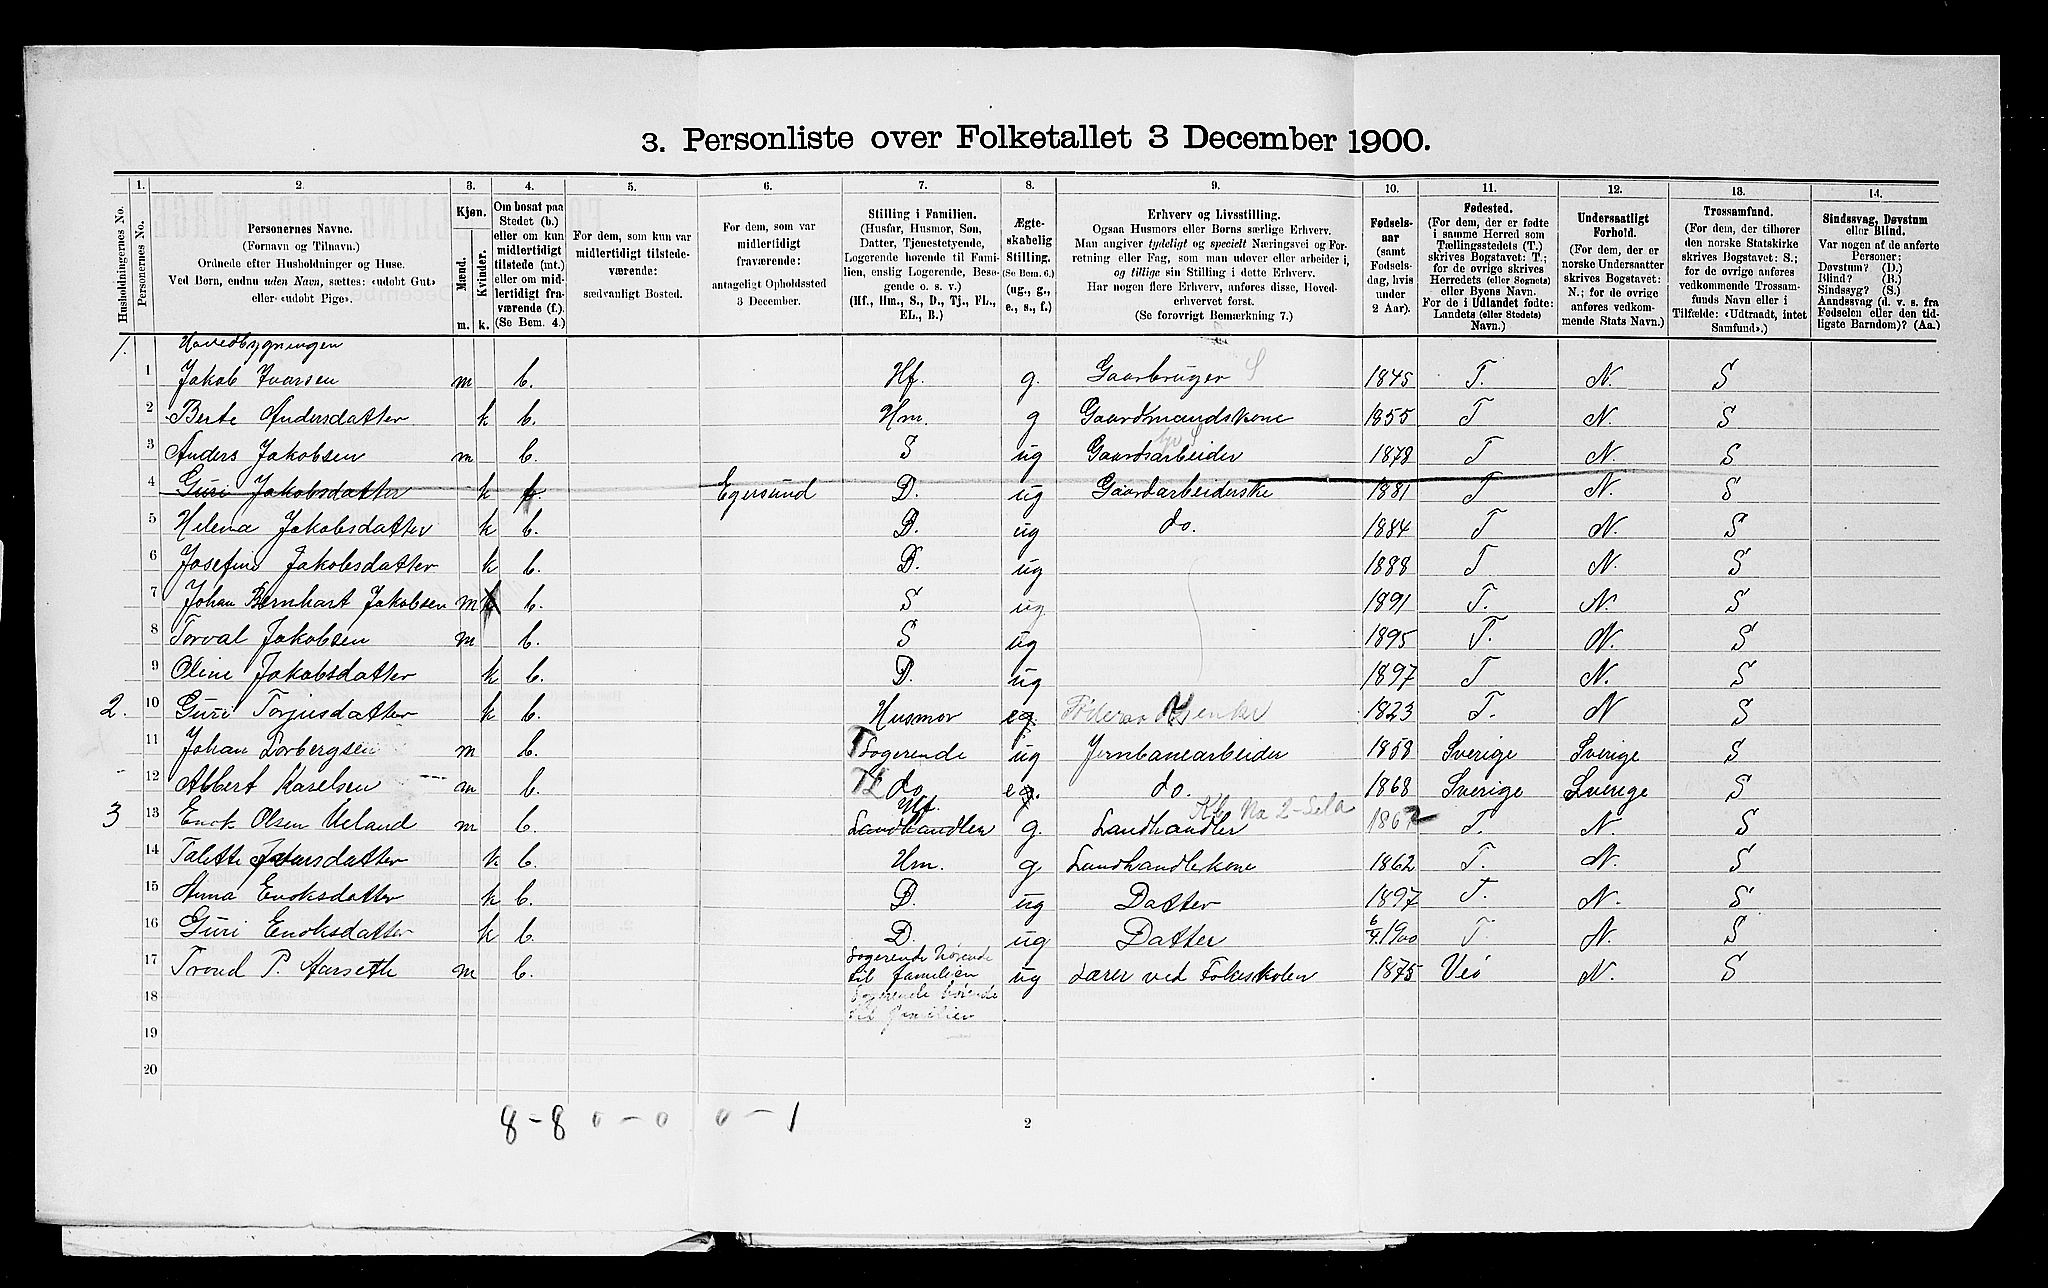 3. Personliste over Folketallet 3 December 1900.
1. 2. 3. 4. 5. 6. 7. 8. 9. 10. 11. 12. 13. 14.
Husholdningernes No.
Personernes No.
Personernes Navne.
(Fornavn og Tilnavn.)
Ordnede efter Husholdninger og Huse.
Ved Børn, endnu uden Navn, sættes: «udøbt Gut»
eller «udøbt Pige».
Kjøn.
Mænd.
Kvinder.
m. k.
Om bosat paa
Stedet (b.)
eller om kun
midlertidigt
tilstede (mt.)
eller om mid-
lertidigt fra-
værende (f.).
(Se Bem. 4.)
For dem, som kun var
midlertidigt tilstede-
værende:
sædvanligt Bosted.
For dem, som var
midlertidigt
fraværende:
antageligt Opholdssted
3 December.
Stilling i Familien.
(Husfar, Husmor, Søn,
Datter, Tjenestetyende,
Logerende hørende til Fami-
lien, enslig Logerende, Besø-
gende o. s. v.)
(Hf., Hm., S., D., Tj., FL.,
EL., B.)
Ægte-
skabelig
Stilling.
(Se Bem. 6.)
(ug., g.,
e., s., f.)
Erhverv og Livsstilling.
Ogsaa Husmors eller Børns særlige Erhverv.
Man angiver tydeligt og specielt Næringsvei og For-
retning eller Fag, som man udøver eller arbeider i,
og tillige sin Stilling i dette Erhverv.
Har nogen flere Erhverv, anføres disse, Hoved-
erhvervet først.
(Se forøvrigt Bemærkning 7.)
Fødsels-
aar
(samt
Fødsels-
dag, hvis
under
2 Aar).
Fødested.
(For dem, der er fødte
i samme Herred som
Tællingsstedets (T.)
skrives Bogstavet: T.;
for de øvrige skrives
Herredets (eller Sognets)
eller Byens Navn.
For de i Udlandet fødte:
Landets (eller Stedets)
Navn.)
Undersaatligt
Forhold.
(For dem, der er
norske Undersaatter
skrives Bogstavet:
N.; for de øvrige
anføres vedkom-
mende Stats Navn.)
Trossamfund.
(For dem, der tilhører
den norske Statskirke
skrives Bogstavet: S.;
for de øvrige anføres
vedkommende Trossam-
funds Navn eller i
Tilfælde: «Udtraadt, intet
Samfund».)
Sindssvag, Døvstum
eller Blind.
Var nogen af de anførte
Personer:
Døvstum? (D.)
Blind? (B.)
Sindssyg? (S.)
Aandssvag (d. v. s. fra
Fødselen eller den tid-
ligste Barndom)? (Aa.)
1. Hovedbygningen
1 Jakob Ivarsen m b. Hf. g. Gaarbruger S 1845 T. N. S
2 Berte Andersdatter k b. Hm. g Gaardmandskone 1855 T N. S
3 Anders Jakobsen m b. S ug Gaardsarbeider 1878 T N. S
4 Guri Jakobsdatter k Egersund D. ug Gaardarbeiderske 1881 T N. S
5 Helena Jakobsdatter k b. D. ug do. 1884 T N. S
6 Josefine Jakobsdatter k b. D. ug 1888 T N. S
7 Johan Bernhart Jakobsen m b. S ug 1891 T. N. S
8 Torval Jakobsen m b. S ug 1895 T. N. S
9 Oline Jakobsdatter k b. D. ug 1897 T N. S
2. 10 Guri Torjusdatter k b. Husmor Føderaad Enke 1823 T. N S
11 Johan Torbergsen m b. Logerende ug Jernbanearbeider 1858 Sverige Sverige S
12 Albert Karelsen m b. do. do. 1868 Sverige Sverige S
3 13 Enok Olsen Ueland m b. Hf. Landhandler g. Landhandler 1862 T. N. S
14 Talette Ivarsdatter k b. Hm. g Landhandlerkone 1862 T. N. S
15 Anna Enoksdatter k b. D. ug Datter 1897 T. N. S
16 Guri Enoksdatter k b. D. ug Datter 6/4 1900 T N. S
17 Trond P. Aarseth m b. Logerende hørende
til familien ug Lærer ved Folkeskolen 1875 Veø N. S
18 Logerende hørende
til familien
19
20
8-8 0-0 0-1
2